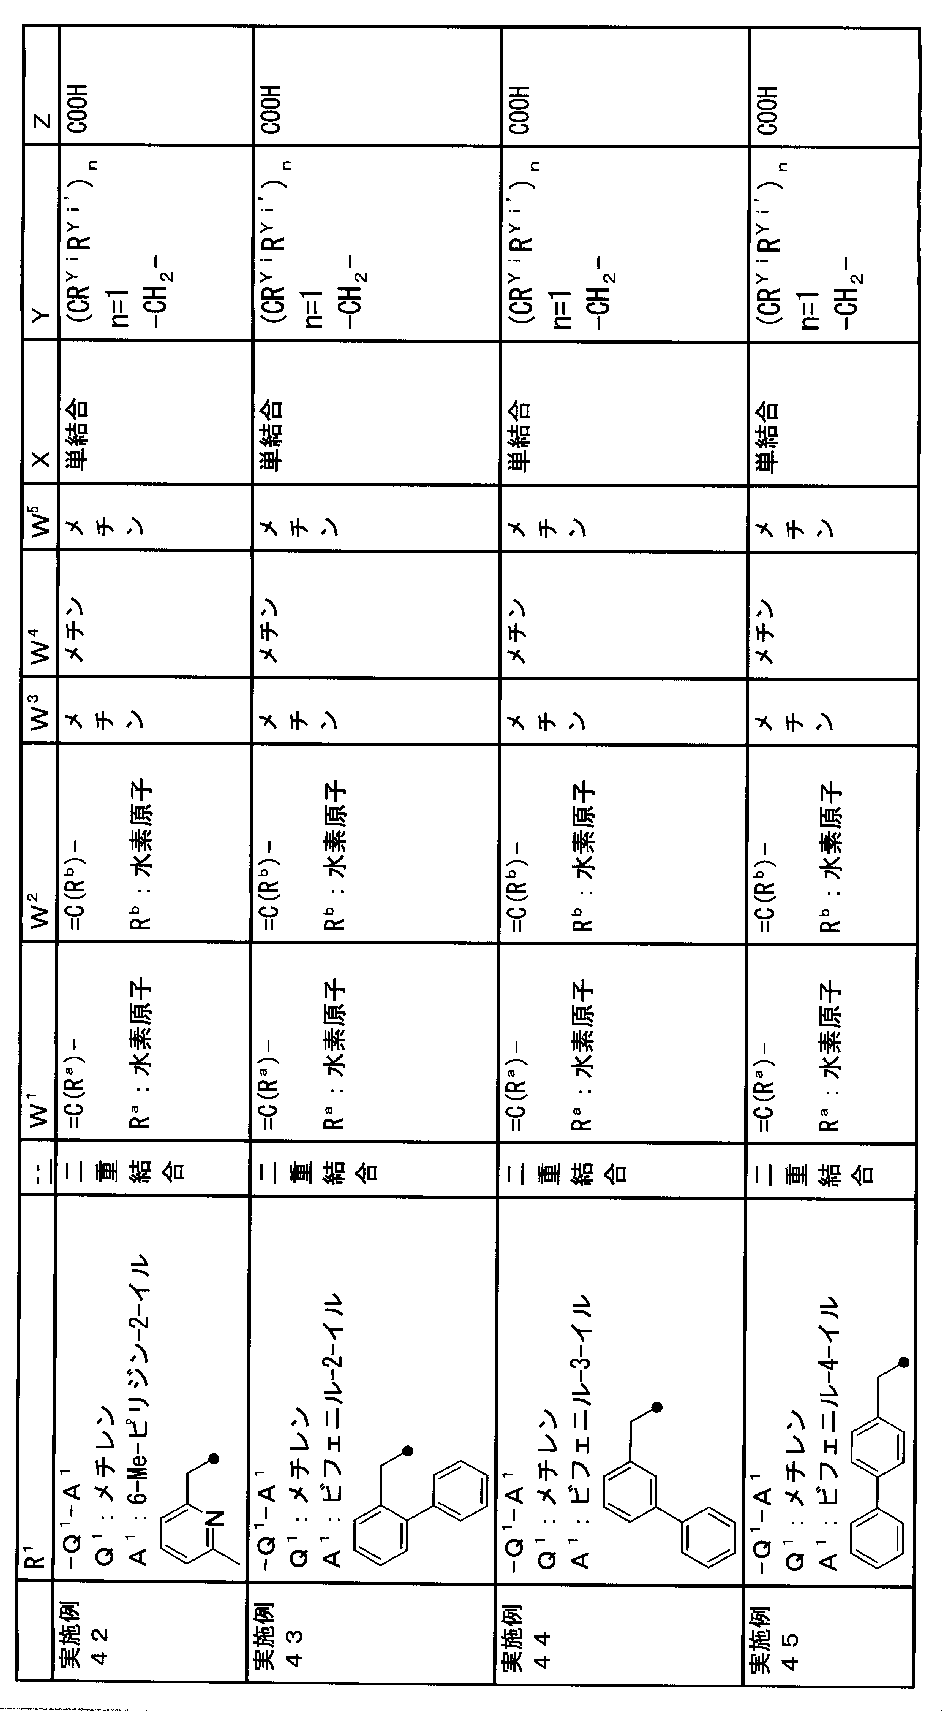 R¹ ⚌ W¹ W² W³ W⁴ W⁵ X Y Z
実施例
42
-Q¹-A¹
Q¹：メチレン
A¹：6-Me-ピリジン-2-イル
N
二
重
結
合
=C(Rᵃ)-
Rᵃ：水素原子
=C(Rᵇ)-
Rᵇ：水素原子
メ
チ
ン
メチン
メ
チ
ン
単結合
(CRʸⁱRʸⁱ')ₙ
n=1
-CH₂-
COOH
実施例
43
-Q¹-A¹
Q¹：メチレン
A¹：ビフェニル-2-イル
二
重
結
合
=C(Rᵃ)-
Rᵃ：水素原子
=C(Rᵇ)-
Rᵇ：水素原子
メ
チ
ン
メチン
メ
チ
ン
単結合
(CRʸⁱRʸⁱ')ₙ
n=1
-CH₂-
COOH
実施例
44
-Q¹-A¹
Q¹：メチレン
A¹：ビフェニル-3-イル
二
重
結
合
=C(Rᵃ)-
Rᵃ：水素原子
=C(Rᵇ)-
Rᵇ：水素原子
メ
チ
ン
メチン
メ
チ
ン
単結合
(CRʸⁱRʸⁱ')ₙ
n=1
-CH₂-
COOH
実施例
45
-Q¹-A¹
Q¹：メチレン
A¹：ビフェニル-4-イル
二
重
結
合
=C(Rᵃ)-
Rᵃ：水素原子
=C(Rᵇ)-
Rᵇ：水素原子
メ
チ
ン
メチン
メ
チ
ン
単結合
(CRʸⁱRʸⁱ')ₙ
n=1
-CH₂-
COOH